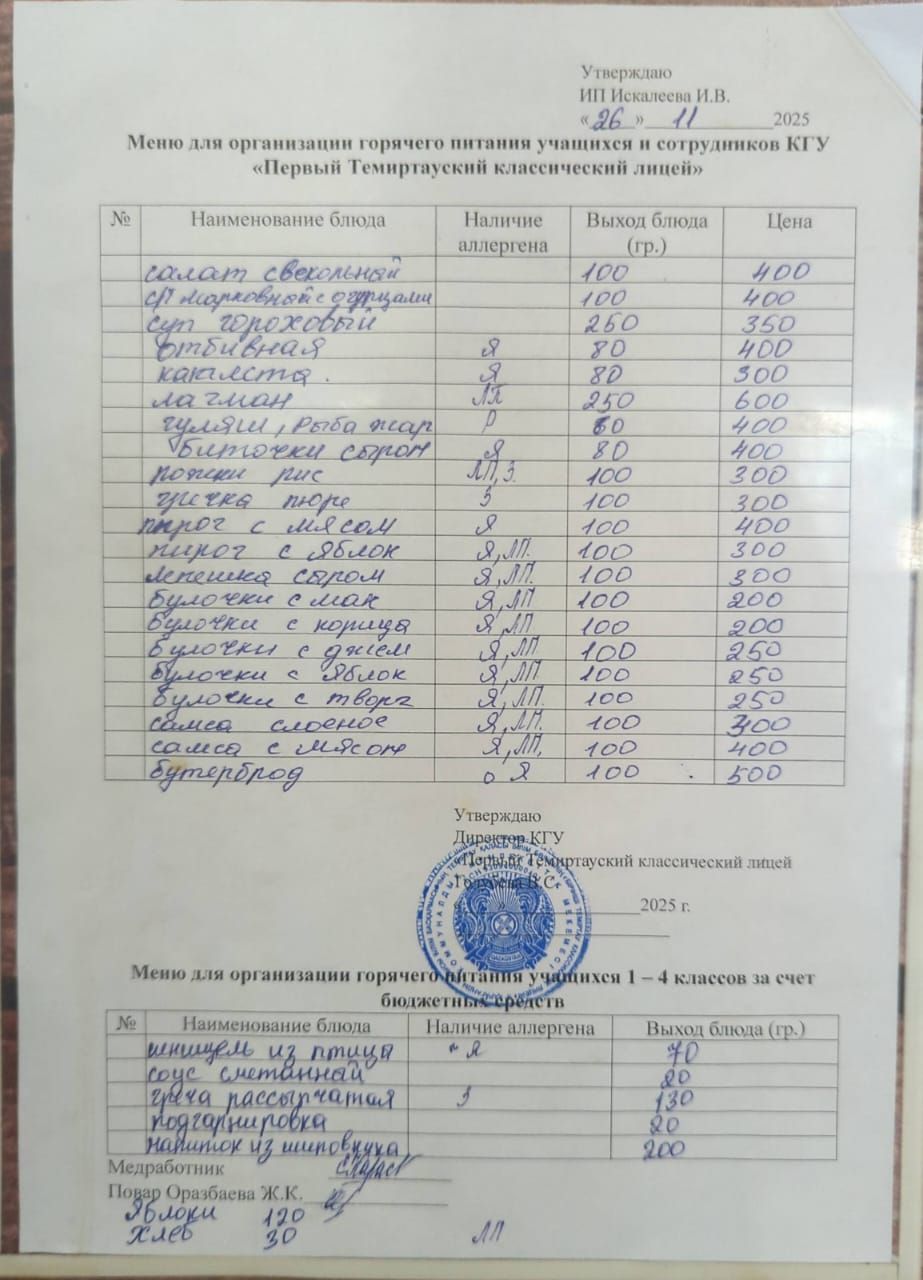 Утверждаю
ИП Искалеева И.В.
« 26 » 11 2025
Меню для организации горячего питания учащихся и сотрудников КГУ
«Первый Темиртауский классический лицей»
№ Наименование блюда Наличие аллергена Выход блюда (гр.) Цена
салат свекольный 100 400
с/т марковный с огурцами 100 400
суп гороховый 250 350
отбивная Я 80 400
Я 80 300
лагман ЛП 250 600
гуляш, рыба жар Р 80 400
биточки сыром Я 80 400
рожки рис ЛП, З. 100 300
гречка пюре З 100 300
пирог с мясом Я 100 400
пирог с яблок Я, ЛП. 100 300
лепешка сыром Я, ЛП. 100 300
булочки с мак Я, ЛП 100 200
булочки с корица Я, ЛП 100 200
булочки с джем Я, ЛП. 100 250
булочки с яблок Я, ЛП 100 250
булочки с творг Я, ЛП. 100 250
самса слоеное Я, ЛП. 100 300
самса с мясом Я, ЛП, 100 400
бутерброд Я 100 500
Утверждаю
Директор КГУ
«Первый Темиртауский классический лицей
Голубева В.С
« » 2025 г.
Меню для организации горячего питания учащихся 1 – 4 классов за счет
бюджетных средств
№ Наименование блюда Наличие аллергена Выход блюда (гр.)
шницель из птицы Я 70
соус сметанный 20
греча рассыпчатая З 130
подгарнировка 20
напиток из шиповника 200
Медработник
Повар Оразбаева Ж.К.
Яблоки 120
Хлеб 30 ЛП